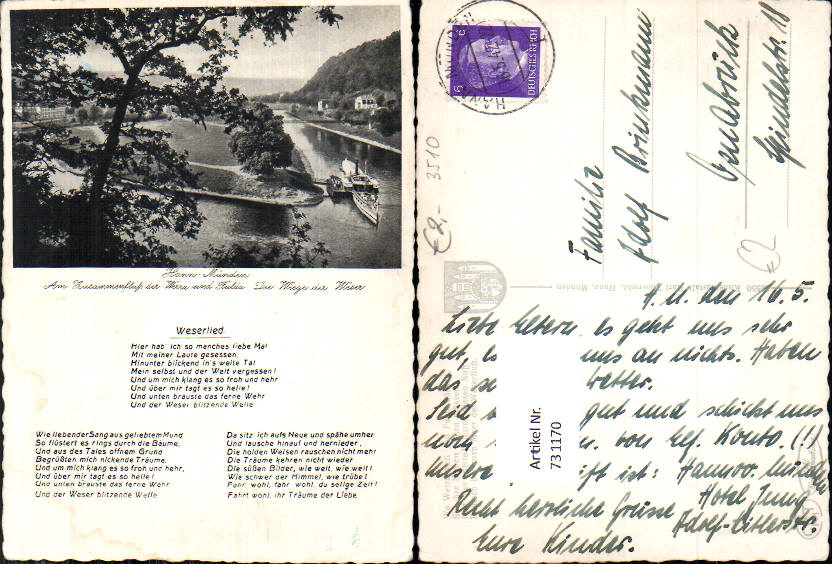 Hann. Münden
Am Zusammenfluß der Werra und Fulda Die Wiege der Weser
Weserlied.
Hier hab' ich so manches liebe Mal
Mit meiner Laute gesessen,
Hinunter blickend in's weite Tal
Mein selbst und der Welt vergessen!
Und um mich klang es so froh und hehr
Und über mir tagt es so helle!
Und unten brauste das ferne Wehr
Und der Weser blitzende Welle
Wie liebender Sang aus geliebtem Mund
So flüstert es rings durch die Bäume,
Und aus des Tales offnem Grund
Begrüßten mich nickende Träume.
Und um mich klang es so froh und hehr,
Und über mir tagt es so helle!
Und unten brauste das ferne Wehr
Und der Weser blitzende Welle
Da sitz' ich aufs Neue und spähe umher
Und lausche hinauf und hernieder,
Die holden Weisen rauschen nicht mehr
Die Träume kehren nicht wieder
Die süßen Bilder, wie weit, wie weit!
Wie schwer der Himmel, wie trübe!
Fahr' wohl, fahr' wohl, du selige Zeit!
Fahrt wohl, ihr Träume der Liebe
DEUTSCHES REICH
6
€2,- 3510
Familie
Adolf Brinkmann
Osnabrück
Spindelstr. 11
€2
Hann. Münden
16.5.
Liebe Eltern. es geht uns sehr
gut, es uns an nichts. Haben
das Wetter.
Seid gut und schickt uns
noch von Konto. (!)
unsere ist: Hannov. Münden
Hotel Jung
Recht herzliche Grüsse Adolf-Hitlerstr.
Eure Kinder.
Artikel Nr.
731170